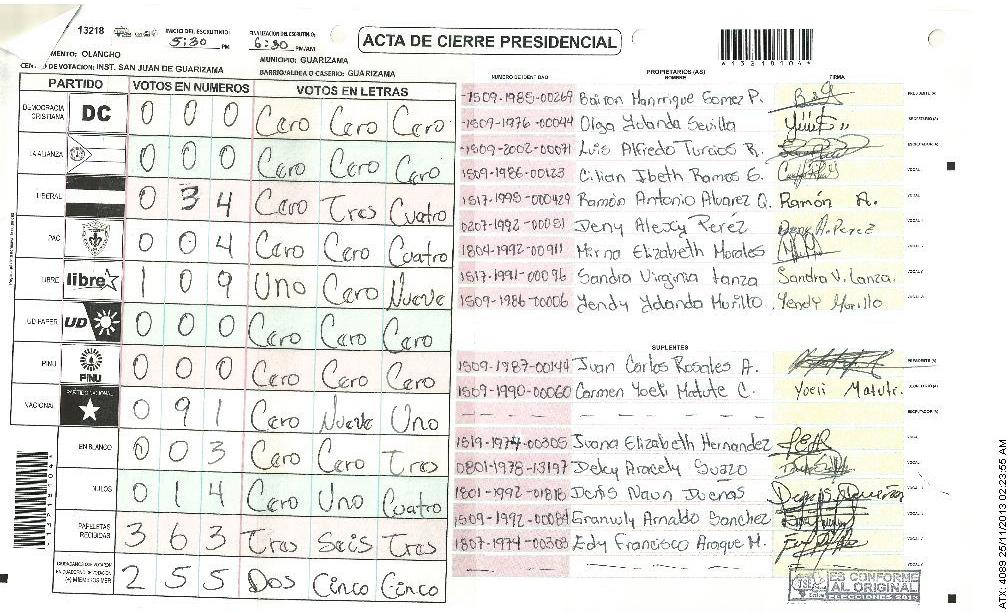 13218
INICIO DEL ESCRUTINIO: 5:30 PM
FINALIZACION DEL ESCRUTINIO: 6:30 PM/AM
ACTA DE CIERRE PRESIDENCIAL
MENTO: OLANCHO
MUNICIPIO: GUARIZAMA
DE VOTACION: INST. SAN JUAN DE GUARIZAMA
BARRIO/ALDEA O CASERIO: GUARIZAMA
PARTIDO VOTOS EN NUMEROS VOTOS EN LETRAS
DEMOCRACIA CRISTIANA DC 0 0 0 Cero Cero Cero
LA ALIANZA 0 0 0 Cero Cero Cero
LIBERAL 0 3 4 Cero Tres Cuatro
PAC 0 0 4 Cero Cero Cuatro
LIBRE libre 1 0 9 Uno Cero Nueve
UD FAPER UD 0 0 0 Cero Cero Cero
PINU PINU 0 0 0 Cero Cero Cero
NACIONAL PARTIDO NACIONAL 0 9 1 Cero Nueve Uno
EN BLANCO 0 0 3 Cero Cero Tres
NULOS 0 1 4 Cero Uno Cuatro
PAPELETAS RECIBIDAS 3 6 3 Tres Seis Tres
2 5 5 Dos Cinco Cinco
PROPIETARIOS (AS)
NUMERO DE IDENTIDAD NOMBRE FIRMA
1509-1985-00269 Bairon Manrrique Gomez P.
1509-1976-00044 Olga Yolanda Sevilla
1509-2002-00071 Luis Alfredo Turcios R.
1509-1986-00123 Cilian Ibeth Ramos G.
1517-1995-000429 Ramón Antonio Alvarez Q. Ramón A.
0207-1992-00051 Deny Alexcy Peréz Deny A. Perez
1804-1992-00911 Mirna Elizabeth Morales
1517-1991-00096 Sandra Virginia Lanza Sandra V. Lanza.
1509-1986-00006 Yendy Yolanda Murillo Yendy Murillo
SUPLENTES
1509-1987-00144 Juan Carlos Rosales A.
1509-1990-00060 Carmen Yoeli Matute C. Yoeli Matute.
1519-1974-00305 Juana Elizabeth Hernandez
0801-1978-13197 Delcy Aracely Suazo
1801-1992-01818 Doris Naun Duenas
1509-1992-00084 Granwly Arnaldo Sanchez
1807-1974-00308 Edy Francisco Araque M.
TSE ES CONFORME AL ORIGINAL
ELECCIONES 2013
ATX: 4089 25/11/2013 02:23:55 AM